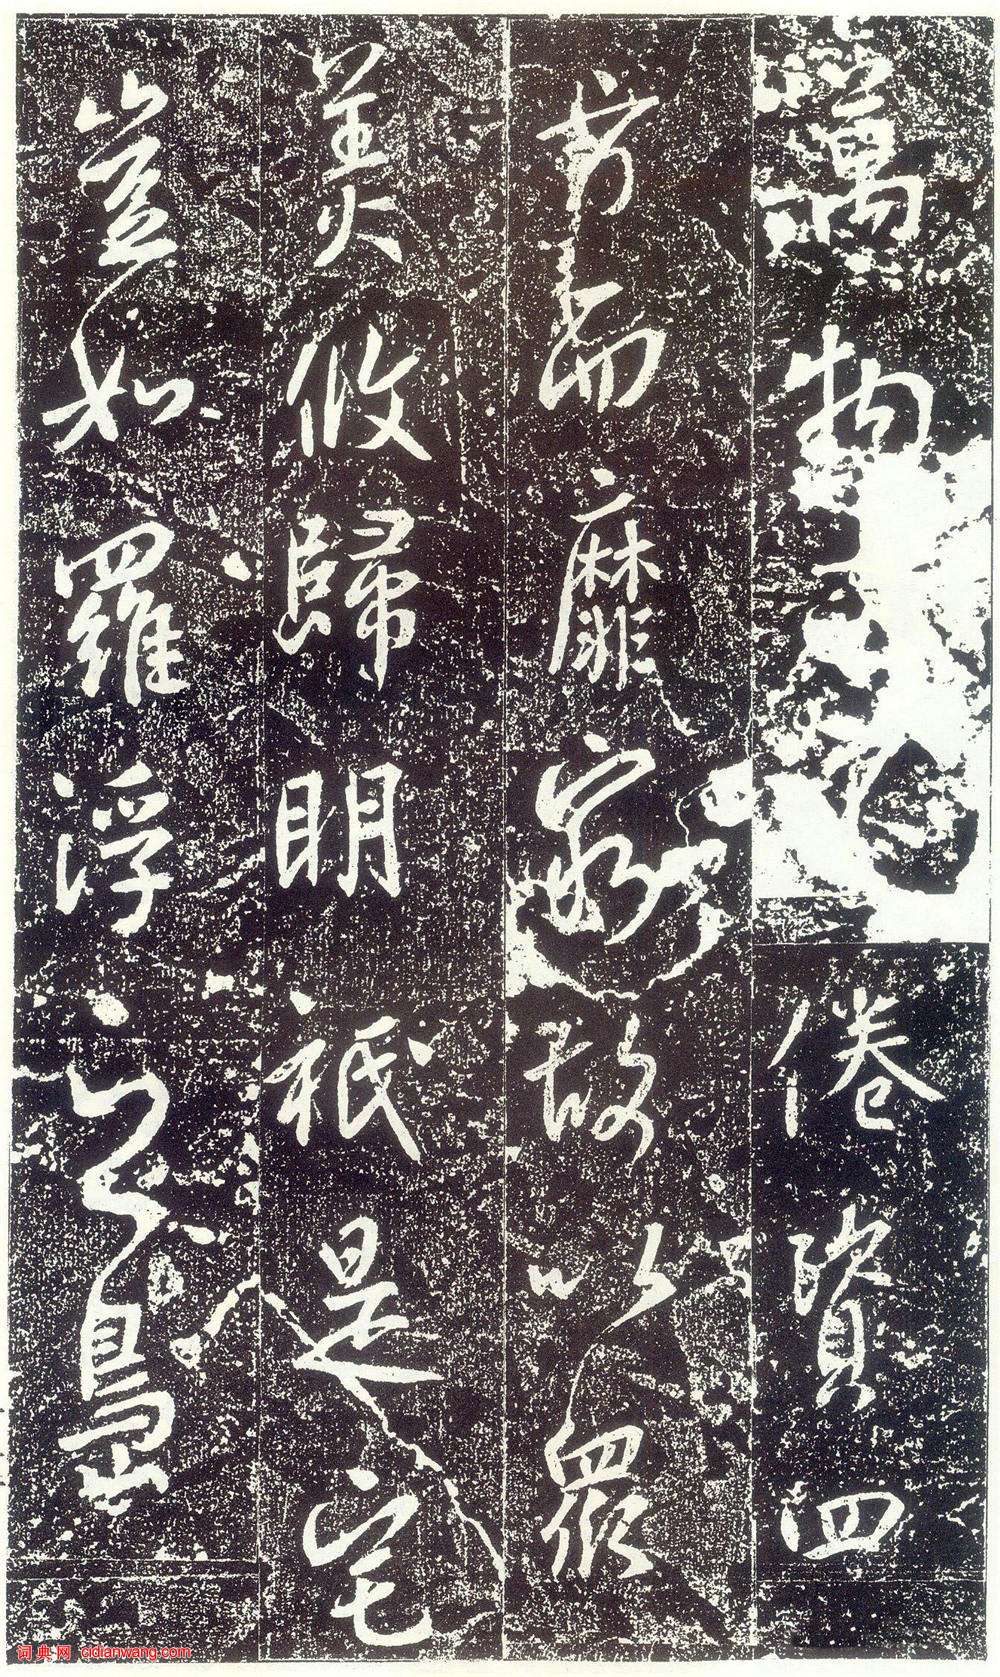 萬物倦資四
方而靡窮故以衆
美攸歸明祇是宅
豈如羅浮之島
词典网 cidianwang.com